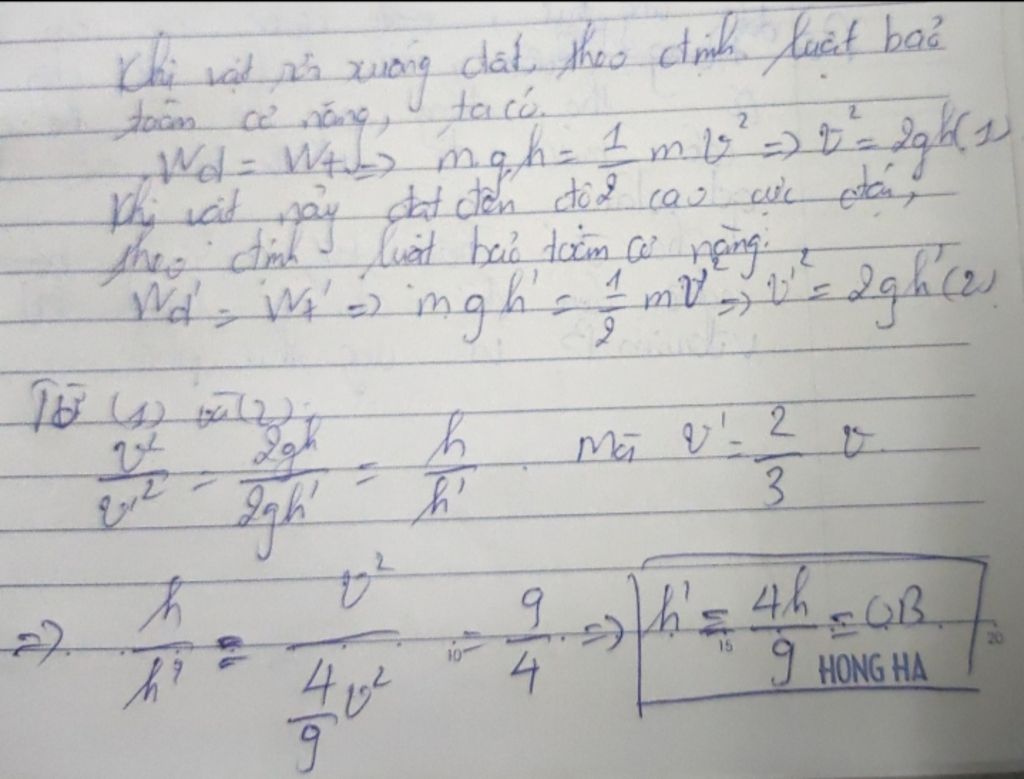 Khi vật rơi xuống đất, theo định luật bảo
toàn cơ năng, ta có.
Wđ = Wt => mgh = 1/2 mv² => v² = 2gh (1)
Khi vật nảy đạt đến độ cao cực đại,
theo định luật bảo toàn cơ năng:
Wđ' = Wt' => mgh' = 1/2 mv'² => v'² = 2gh' (2)
Từ (1) và (2):
v²/v'² = 2gh/2gh' = h/h'. Mà v' = 2/3 v.
=> h/h' = v²/(4/9 v²) = 9/4 => h' = 4h/9 = OB
10 15 20
HONG HA